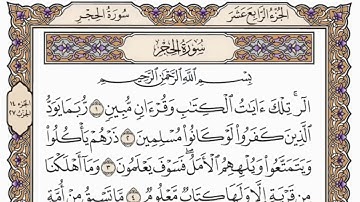 الجزء الرابع عشر
سورة الحجر
سورة الحجر
بِسْمِ اللَّهِ الرَّحْمَٰنِ الرَّحِيمِ
الٓر ۚ تِلْكَ ءَايَٰتُ ٱلْكِتَٰبِ وَقُرْءَانٍ مُّبِينٍ ١ رُّبَمَا يَوَدُّ
ٱلَّذِينَ كَفَرُوا۟ لَوْ كَانُوا۟ مُسْلِمِينَ ٢ ذَرْهُمْ يَأْكُلُوا۟
وَيَتَمَتَّعُوا۟ وَيُلْهِهِمُ ٱلْأَمَلُ ۖ فَسَوْفَ يَعْلَمُونَ ٣ وَمَآ أَهْلَكْنَا
مِن قَرْيَةٍ إِلَّا وَلَهَا كِتَابٌ مَّعْلُومٌ ٤ مَّا تَسْبِقُ مِنْ أُمَّةٍ
الجزء ١٤
الحزب ٢٧